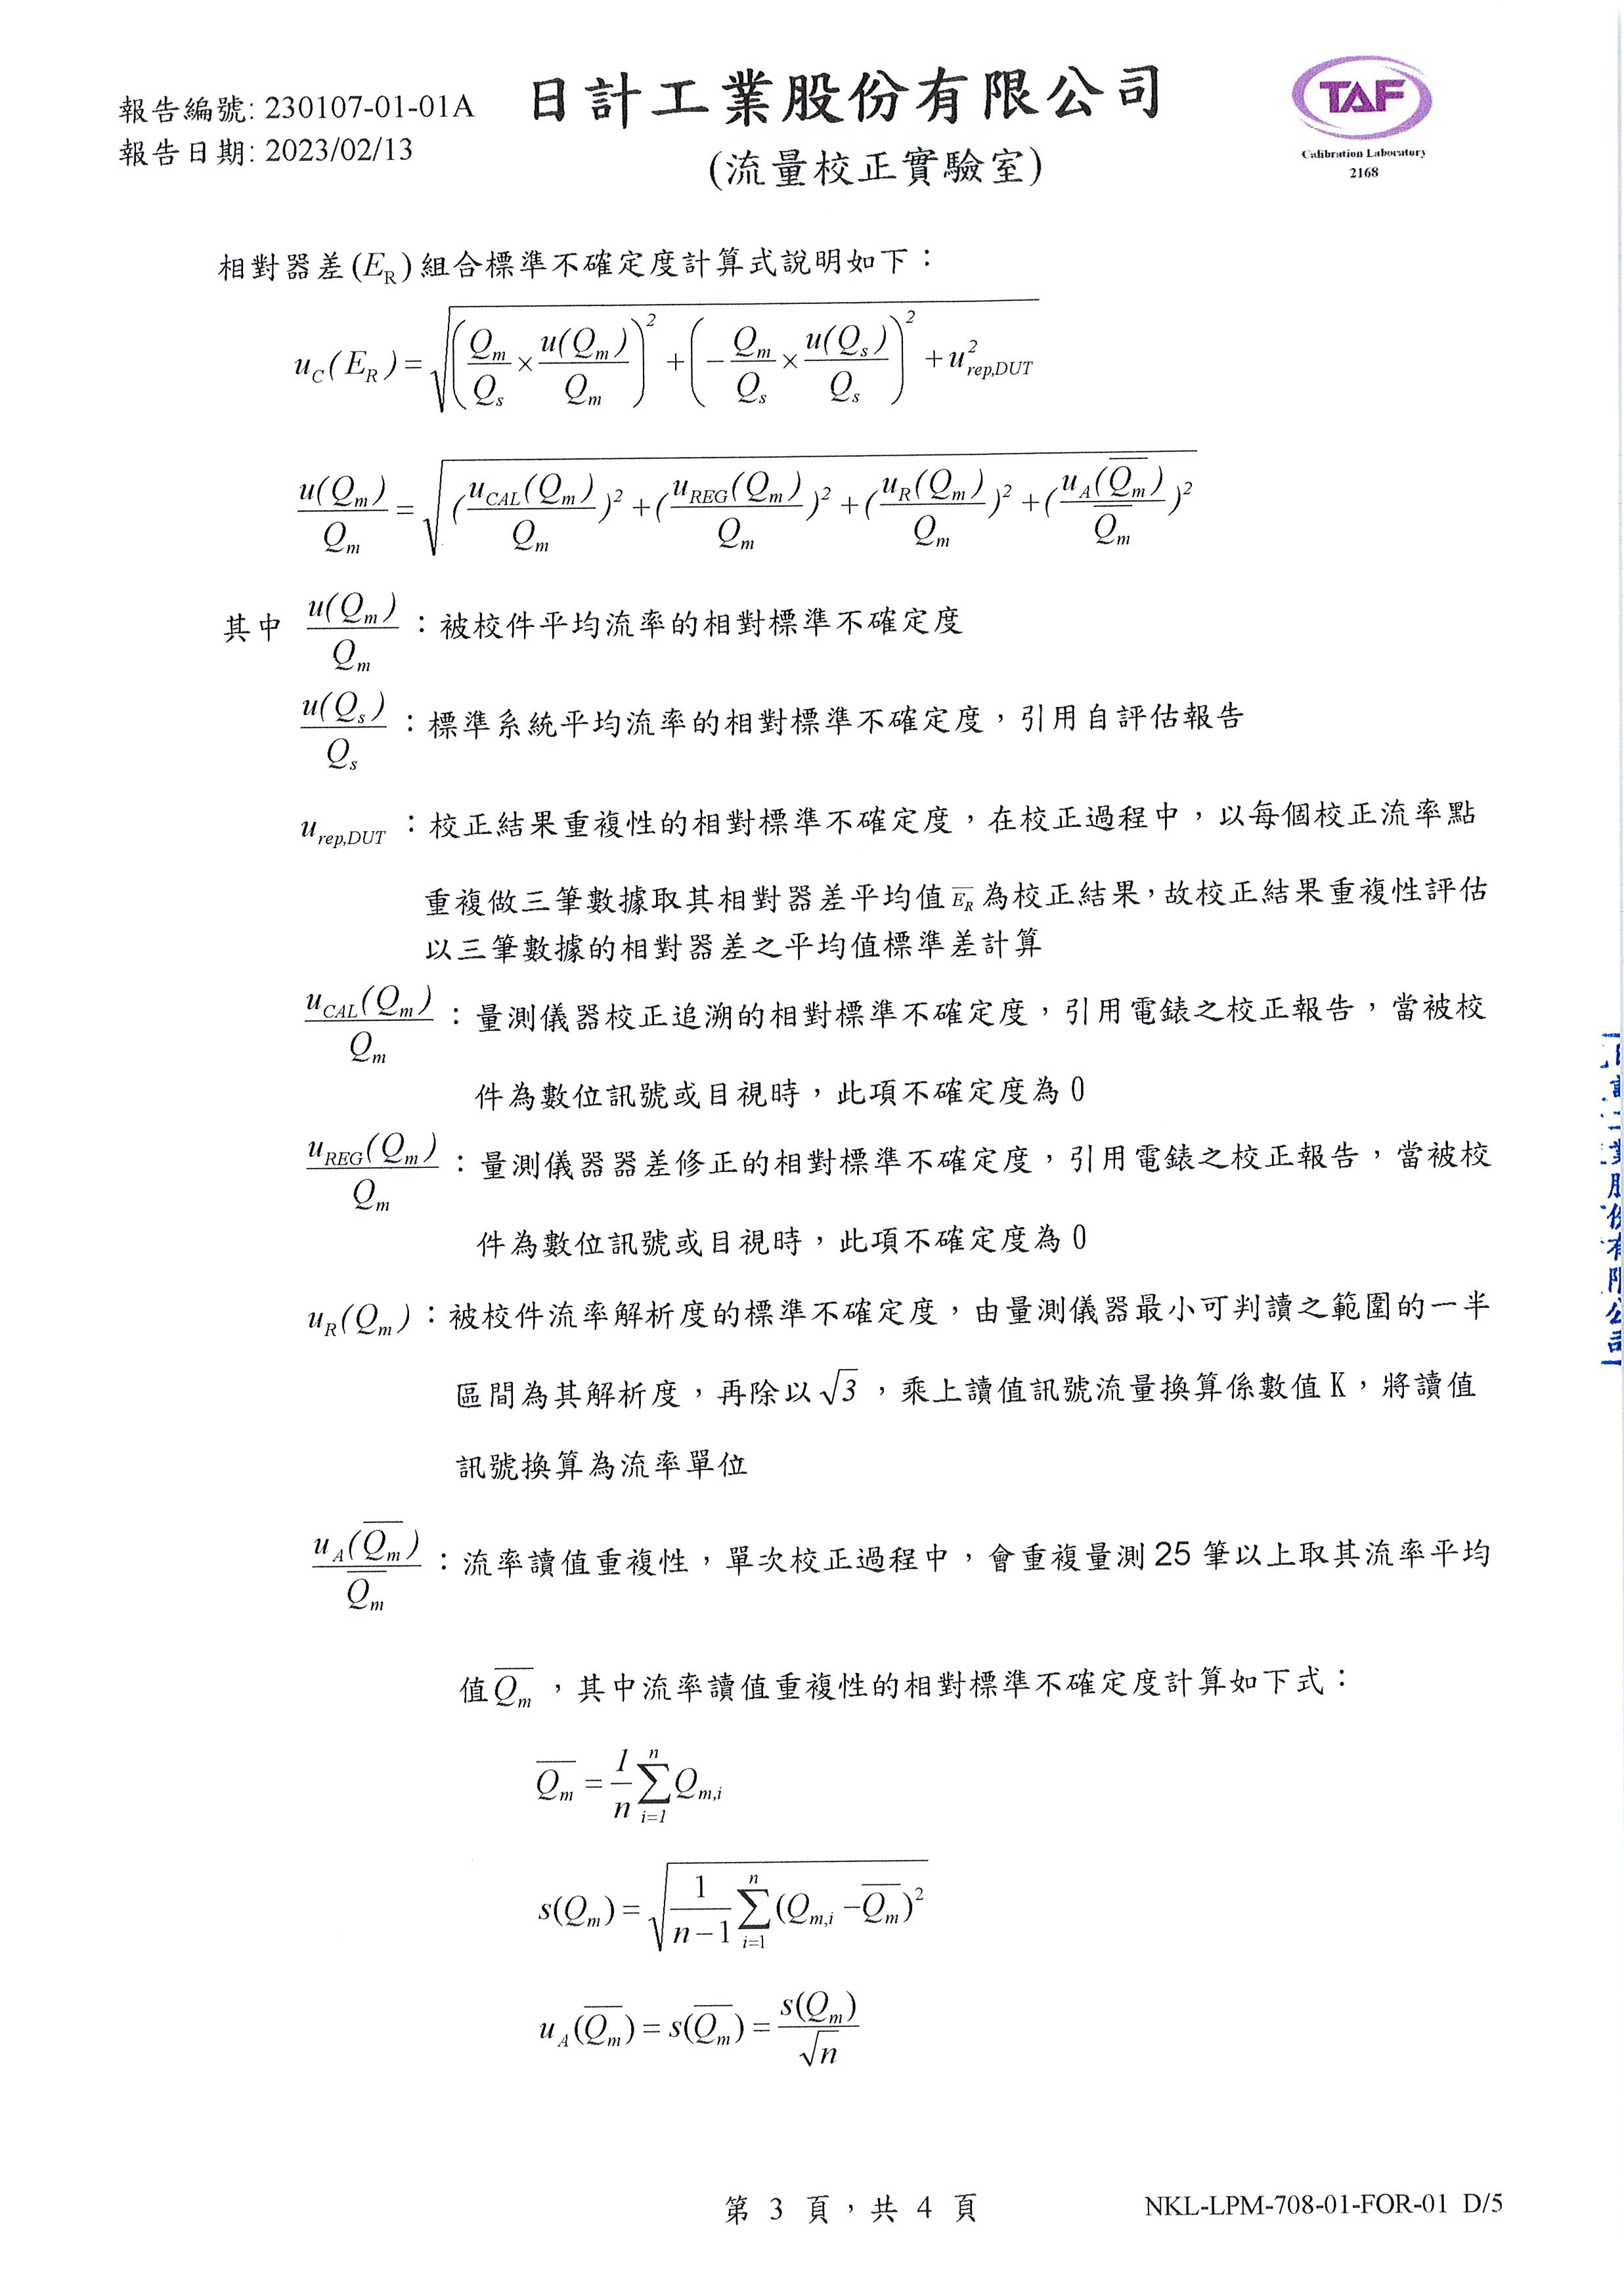 報告編號: 230107-01-01A
報告日期: 2023/02/13
日計工業股份有限公司
(流量校正實驗室)
TAF
Calibration Laboratory
2168
相對器差(E_R)組合標準不確定度計算式說明如下：
u_C(E_R)=√((Q_m/Q_s × u(Q_m)/Q_m)² + (−Q_m/Q_s × u(Q_s)/Q_s)² + u²_rep,DUT)
u(Q_m)/Q_m = √((u_CAL(Q_m)/Q_m)² + (u_REG(Q_m)/Q_m)² + (u_R(Q_m)/Q_m)² + (u_A(Q̅_m)/Q̅_m)²)
其中 u(Q_m)/Q_m：被校件平均流率的相對標準不確定度
u(Q_s)/Q_s：標準系統平均流率的相對標準不確定度，引用自評估報告
u_rep,DUT：校正結果重複性的相對標準不確定度，在校正過程中，以每個校正流率點
重複做三筆數據取其相對器差平均值 E̅_R 為校正結果，故校正結果重複性評估
以三筆數據的相對器差之平均值標準差計算
u_CAL(Q_m)/Q_m：量測儀器校正追溯的相對標準不確定度，引用電錶之校正報告，當被校
件為數位訊號或目視時，此項不確定度為 0
u_REG(Q_m)/Q_m：量測儀器器差修正的相對標準不確定度，引用電錶之校正報告，當被校
件為數位訊號或目視時，此項不確定度為 0
u_R(Q_m)：被校件流率解析度的標準不確定度，由量測儀器最小可判讀之範圍的一半
區間為其解析度，再除以√3，乘上讀值訊號流量換算係數值 K，將讀值
訊號換算為流率單位
u_A(Q̅_m)/Q̅_m：流率讀值重複性，單次校正過程中，會重複量測 25 筆以上取其流率平均
值 Q̅_m，其中流率讀值重複性的相對標準不確定度計算如下式：
Q̅_m = 1/n Σ_{i=1}^{n} Q_m,i
s(Q_m) = √(1/(n−1) Σ_{i=1}^{n} (Q_m,i − Q̅_m)²)
u_A(Q̅_m) = s(Q̅_m) = s(Q_m)/√n
第 3 頁，共 4 頁
NKL-LPM-708-01-FOR-01 D/5